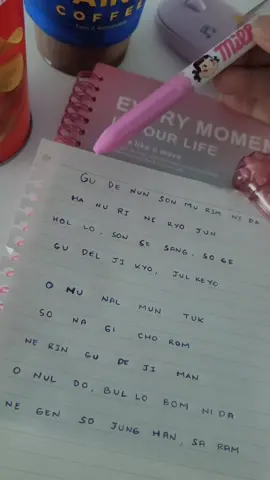 COFFEE
EVERY MOMEN
IN YOUR LIFE
is like a wave
GU DE NUN SON MU RIM NI DA
HA NU RI NE RYO JUN
HOL LO, SON SE SANG, SO GE
GU DEL JI KYO, JUL KEYO
O NU NAL MUN TUK
SO NA GI CHO ROM
NE RIN GU DE JI MAN
O NUL DO, BUL LO BOM NI DA
NE GEN SO JUNG HAN, SA RAM